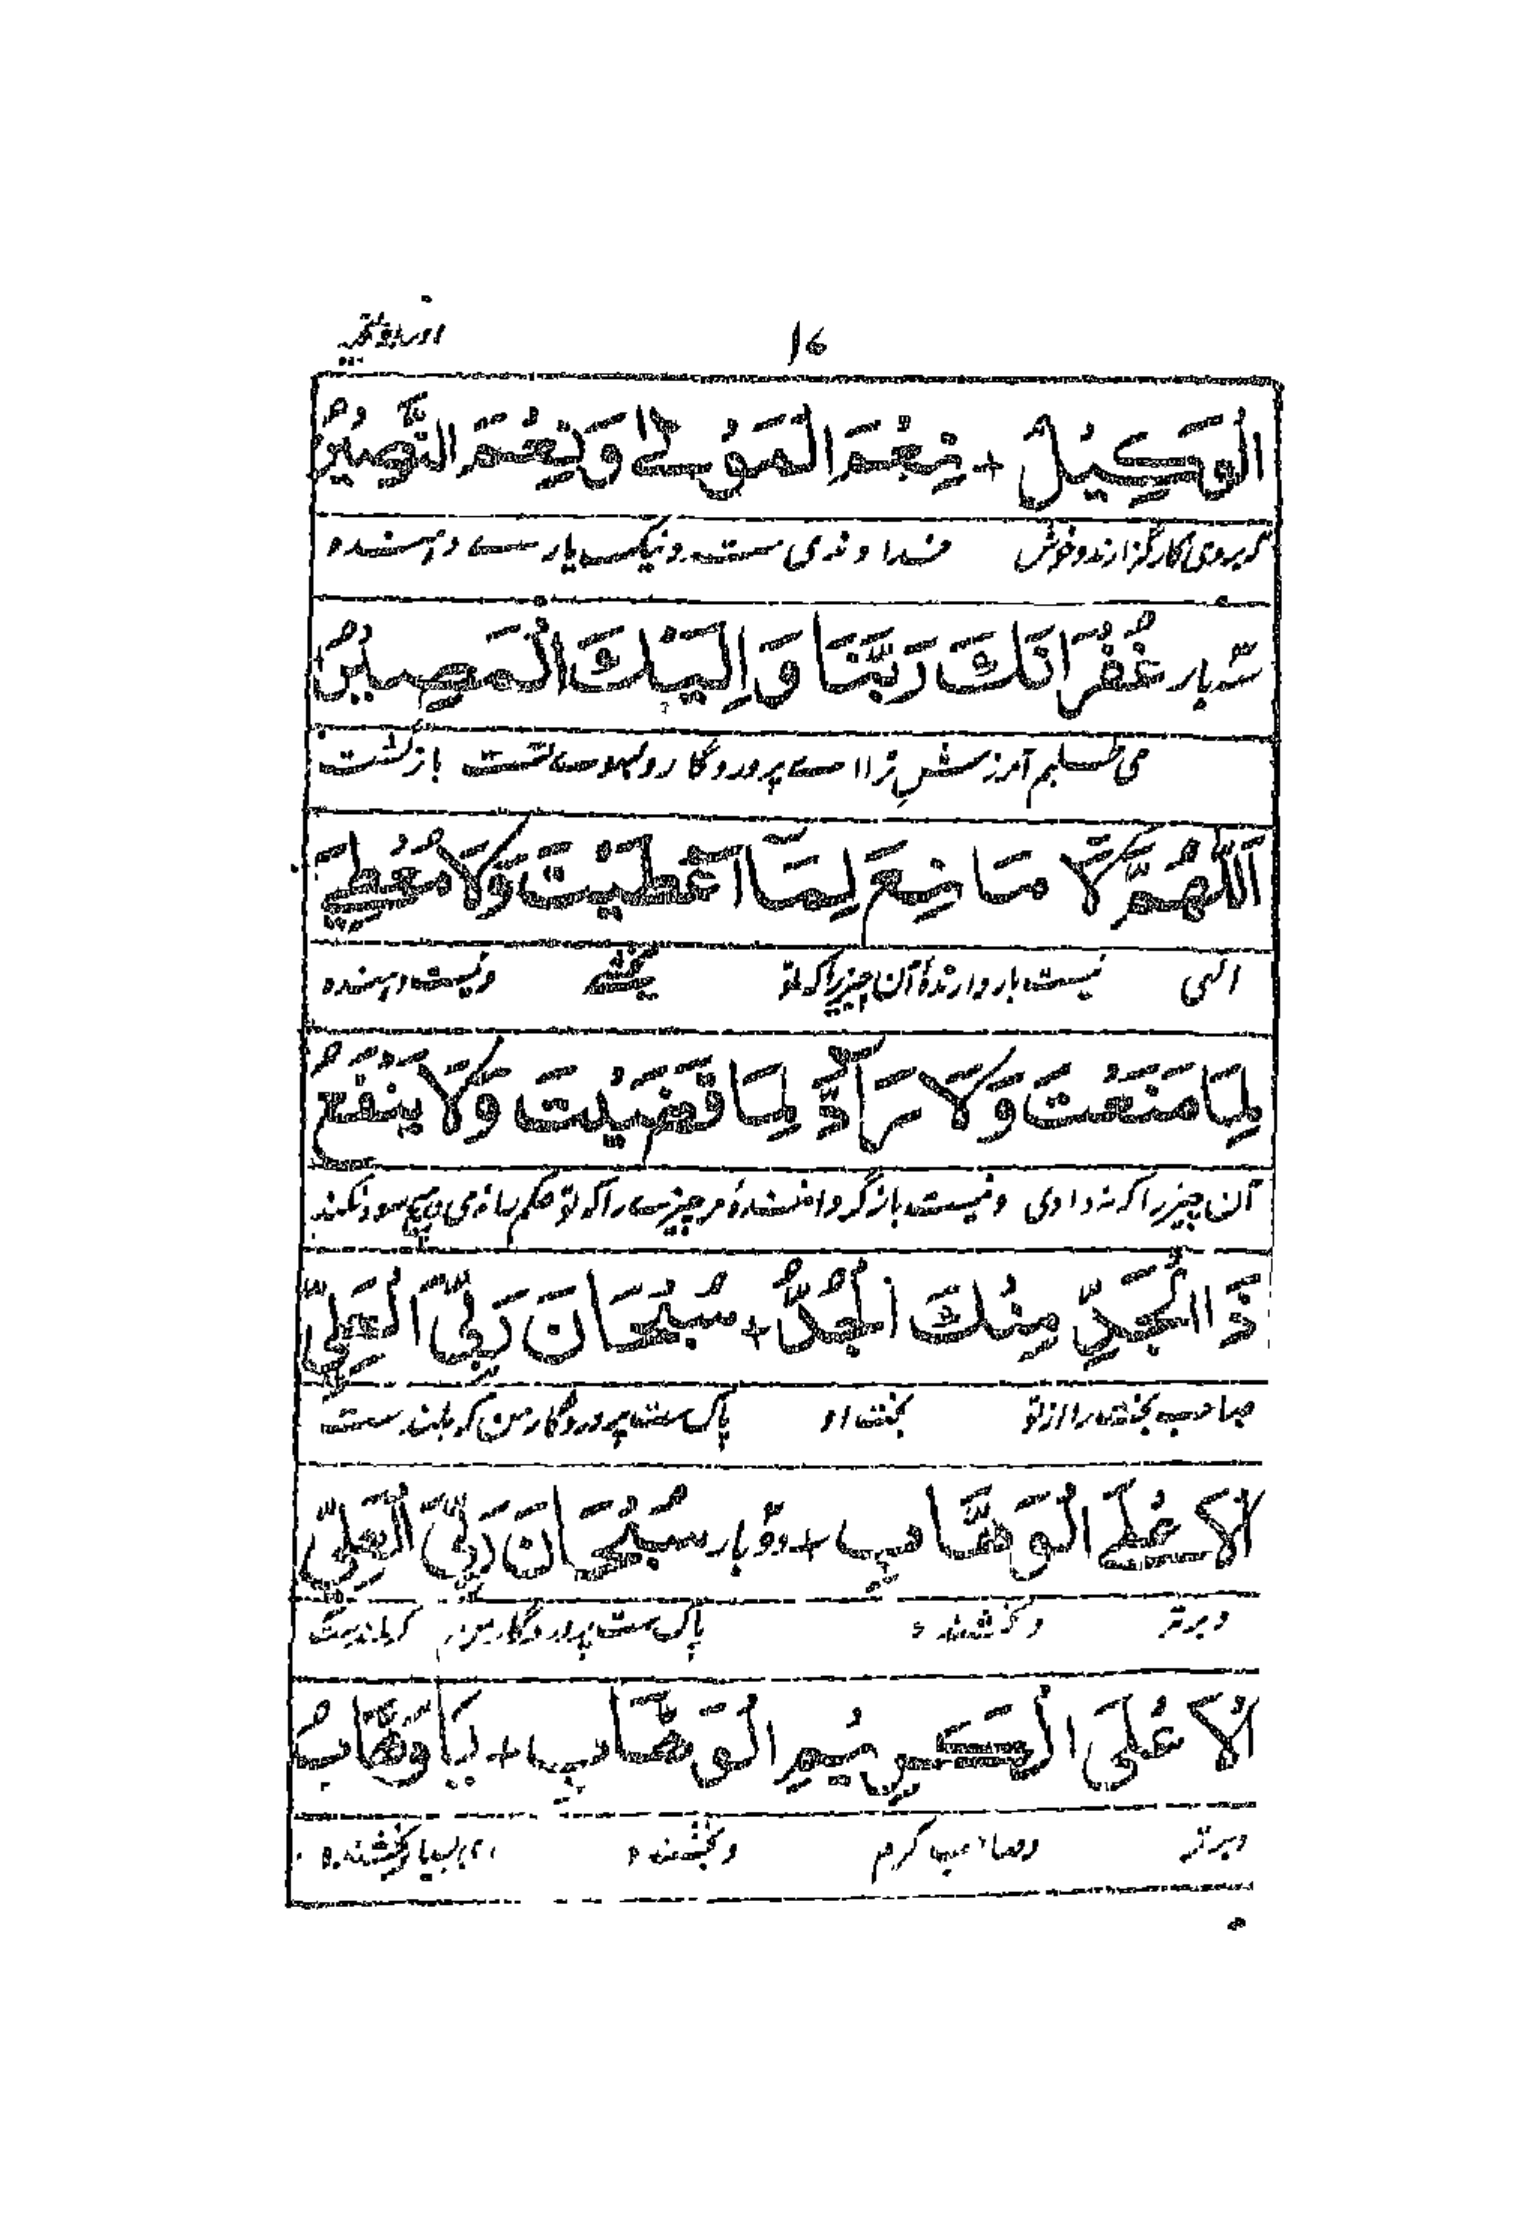 اوراد فتحیہ
١٦
الْوَكِيْلُ + نِعْمَ الْمَوْلٰى وَنِعْمَ النَّصِيْرُ
کار گزارنده و خوش خداوندی ست و نیک یارے دہندہ
سہ بار غُفْرَانَكَ رَبَّنَا وَاِلَيْكَ الْمَصِيْرُ
می طلبم آمرزشِ ترا اے پروردگار و بسوے تست بازگشت
اَللّٰهُمَّ لَا مَانِعَ لِمَآ اَعْطَيْتَ وَلَا مُعْطِيَ
الہی نیست باز دارندۂ آن چیز را که تو بخشے و نیست دہندہ
لِمَا مَنَعْتَ وَلَا رَآدَّ لِمَا قَضَيْتَ وَلَا يَنْفَعُ
آن چیز را که نہ دادی و نیست باز گردانندۂ مر چیزے را که تو حکم راندی و ہیچ سود نکند
ذَا الْجَدِّ مِنْكَ الْجَدُّ + سُبْحَانَ رَبِّيَ الْعَلِيِّ
صاحب بخت را از تو بخت او پاک ست پروردگار من که بلند ست
الْاَعْلَى الْوَهَّابِ + دو بار سُبْحَانَ رَبِّيَ الْعَلِيِّ
و برتر و بخشنده پاک ست پروردگار من که بلندست
الْاَعْلَى الْكَرِيْمِ الْوَهَّابِ + يَا وَهَّابُ
و برتر و صاحب کرم و بخشنده اے بسیار بخشنده